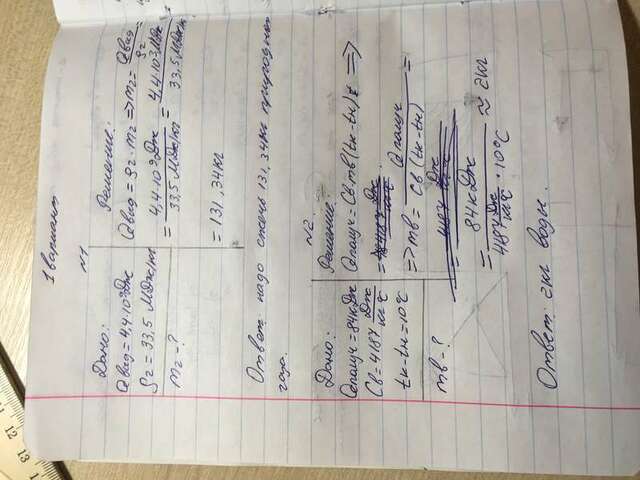 1 вариант
№1
Дано:
Qвыд = 4,4·10⁹ Дж
qг = 33,5 МДж/кг
mг - ?
Решение:
Qвыд = qг · mг => mг = Qвыд / qг
= 4,4·10⁹ Дж / 33,5 МДж/кг = 4,4·10³ МДж / 33,5 МДж/кг
= 131,34 кг
Ответ: надо сжечь 131,34кг природного
газа.
№2.
Дано:
Qполуч = 84 кДж
Cв = 4187 Дж/кг°C
tк - tн = 10°C
mв - ?
Решение:
Qполуч = Cв·mв (tк - tн) =>
=> mв = Qполуч / Cв (tк - tн) =
= 84 кДж / 4187 Дж/кг°C · 10°C ≈ 2кг
Ответ: 2кг воды.